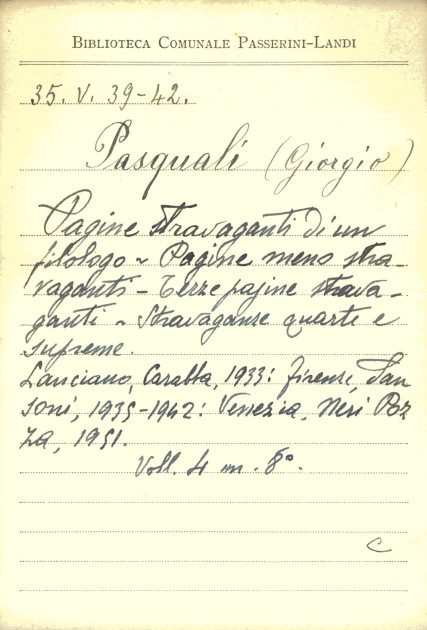 BIBLIOTECA COMUNALE PASSERINI-LANDI
35. V. 39-42.
Pasquali (Giorgio)
Pagine stravaganti di un
filologo ~ Pagine meno stra-
vaganti - Terze pagine strava-
ganti ~ Stravaganze quarte e
supreme.
Lanciano, Carabba, 1933: Firenze, San
soni, 1935-1942: Venezia, Neri Poz
za, 1951.
Voll. 4 in 8°.
C